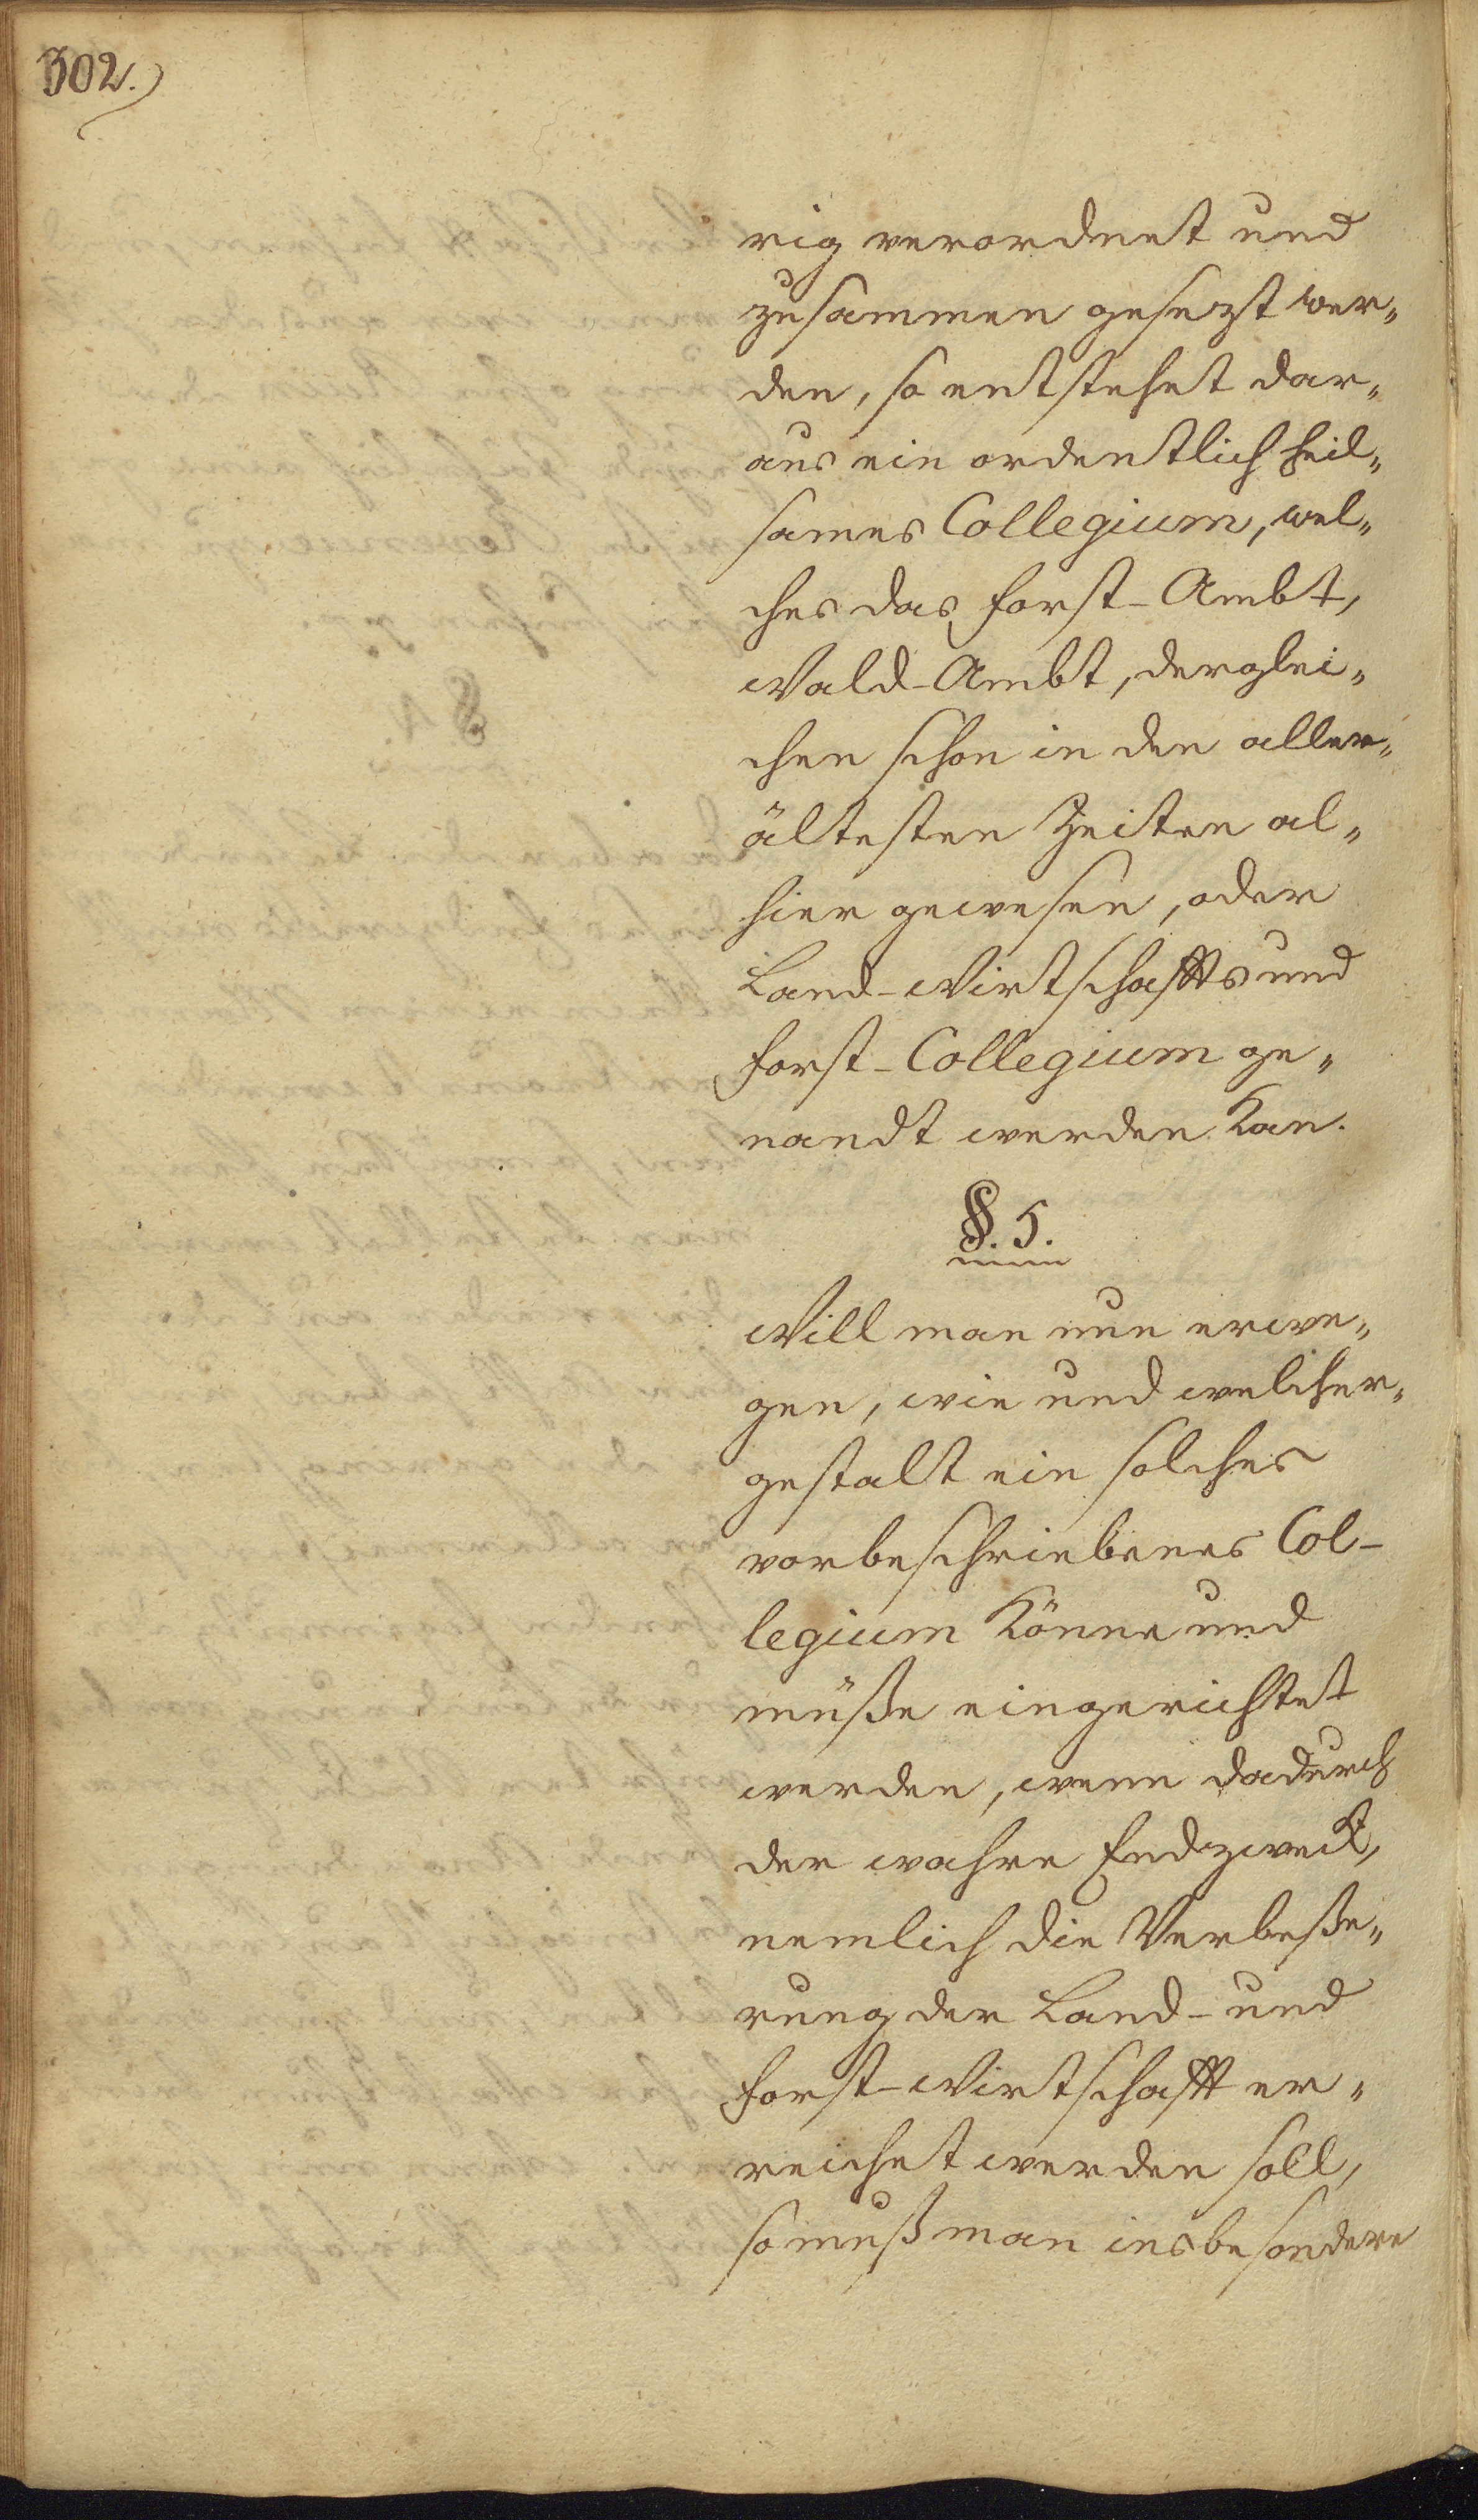 302.
rig verordnet und
zusammen gesezt wer„
den, so entstehet dar„
aus ein ordentlich heil„
sames Collegium, wel„
ches das Forst-Ambt,
Wald-Ambt, derglei„
chen schon in den aller„
ältesten Zeiten al„
hier gewesen, oder
Land-Wirtschaffts und
Forst-Collegium ge„
nandt werden kan.
§. 5.
Will man nun erwe„
gen, wie und welcher„
gestalt ein solches
vorbeschriebenes Col-
legium könne und
müße eingerichtet
werden, wenn dadurch
der wahre Endzweck,
nemlich die Verbeße„
rung der Land- und
Forst-Wirtschafft er„
reichet werden soll,
so muß man insbesondere